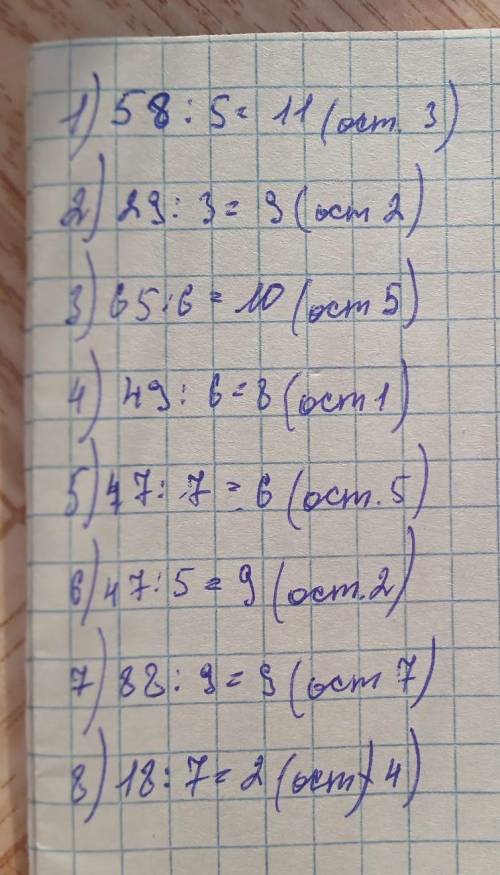 1) 58 : 5 = 11 (ост. 3)
2) 29 : 3 = 9 (ост 2)
3) 65 : 6 = 10 (ост 5)
4) 49 : 6 = 8 (ост 1)
5) 47 : 7 = 6 (ост. 5)
6) 47 : 5 = 9 (ост. 2)
7) 88 : 9 = 9 (ост 7)
8) 18 : 7 = 2 (ост 4)